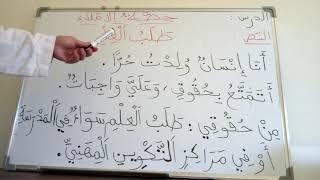 الدرس : حصة الإملاء
النص : طَلَبُ الْعِلْمِ
أَنَا إِنْسَانٌ وُلِدْتُ حُرًّا .
أَتَمَتَّعُ بِحُقُوقِي وَعَلَيَّ وَاجِبَاتٌ .
مِنْ حُقُوقِي : طَلَبُ الْعِلْمِ سَوَاءٌ فِي الْمَدْرَسَةِ
أَوْ فِي مَرَاكِزِ التَّكْوِينِ الْمِهَنِيِّ .